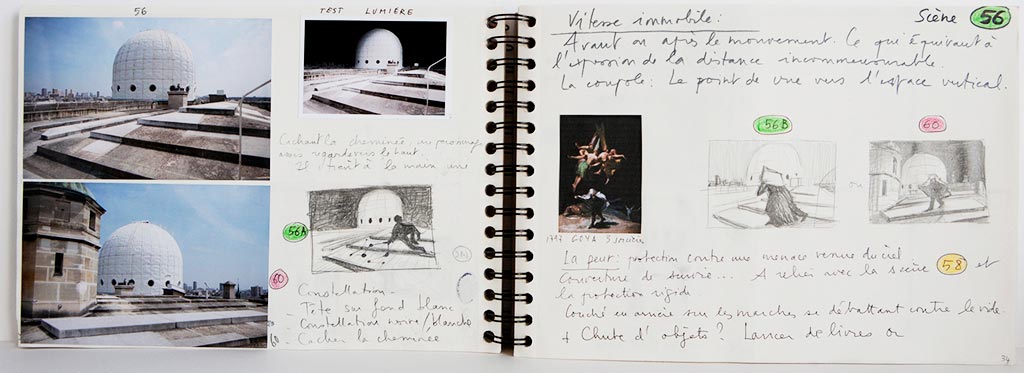 56
TEST LUMIÈRE
Cachant la cheminée, un personnage
nous regarde vers le haut.
Il tient à la main une
56A
60
Constellation.
- Tête sur fond blanc
- Constellation noire/blanche
60 - Cacher la cheminée
Vitesse immobile :
Scène 56
Avant ou après le mouvement. Ce qui équivaut à
l'expression de la distance incommensurable.
La coupole : Le point de vue vers l'espace vertical.
56B
60
ou
1797 GOYA
La peur : protection contre une menace venue du ciel
Couverture de survie... A relier avec la scène 58 et
la protection rigide.
Couché en arrière sur les marches se débattant contre le vide.
+ Chute d'objets ? Lancer de livres or
34